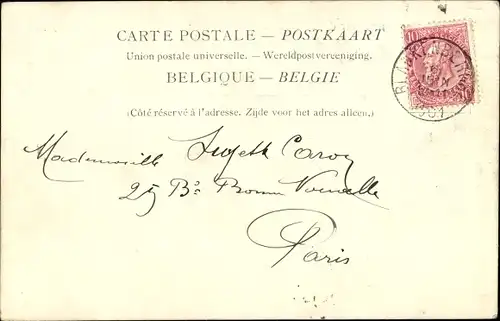 CARTE POSTALE — POSTKAART
Union postale universelle. — Wereldpostvereeniging.
BELGIQUE — BELGIE
(Côté réservé à l'adresse. Zijde voor het adres alleen.)
10 10
Mademoiselle
25 Bd Bonne Nouvelle
Paris